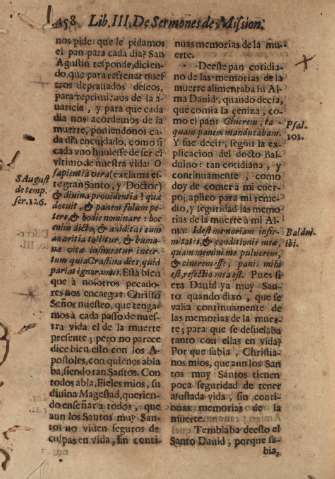 458 Lib. III. De Sermones de Mission.
nos pide: que le pidamos
el pan para cada dia? San
Agustin responde, dicien-
do, que para refrenar nuestros
depravados deseos,
para reprimirnos de la a-
varicia, y para que cada
dia nos acordemos de la
muerte, poniendonos ca-
da dia en cuidarlo, como si
cada uno huviesse de ser el
ultimo de nuestra vida: O
sapientia vera (exclama es-
te gran Santo, y Doctor)
& divina providentia!
petere, & hodie nominare: hoc
enim dicto, & aviditas cum
avaritia tollitur, & huma-
na vita insinuatur incer-
tum quia Crastina dies, quid
pariat ignoramus. Està bien
que à nosotros pecado-
res nos encargue Christo
Señor nuestro, que tenga-
mos à cada passo de nues-
tra vida el de la muerte
presente; pero no parece
dice bien esto con los A-
postoles, con quienes habla
ba, siendo tan Santos. Con
todos abla, Fieles mios, su
divina Magestad, querien-
do enseñar à todos, que
aun los Santos muy San-
tos no viven seguros de
culpas en vida, sin conti-
S. August.
de temp.
ser. 126.
nuas memorias de la muer-
te.
De este pan cotidia-
no de las memorias de la
muerte alimentaba su Al-
ma David, quando decia,
que comia la ceniza, co-
mo el pan: Cinerem, ta-
quam panem manducabam.
Y fue decir, segun la ex-
plicacion del docto Bal-
duino: tan cotidiana, y
continuamente, como
doy de comer à mi cuer-
po, aplico para mi reme-
dio, y seguridad las memo-
rias de la muerte à mi Al-
ma: Idest memoriam infir-
mitatis, & conditionis meæ,
quam nemini me pulverem,
& cinerem esse; panis mihi
est, refectio mea est. Pues si
era David ya muy San-
to quando dixo, que se
valia continuamente de
las memorias de la muer-
te; para que se desvelaba
tanto con ellas en vida?
Por que sabia, Christia-
nos mios, que aun los San-
tos muy Santos tienen
poca seguridad de tener
ajustada vida, sin conti-
nuas memorias de la
muerte.
Temblaba de esto el
Santo David, porque sa-
bia,
Psal.
101.
Balduï
ibi.